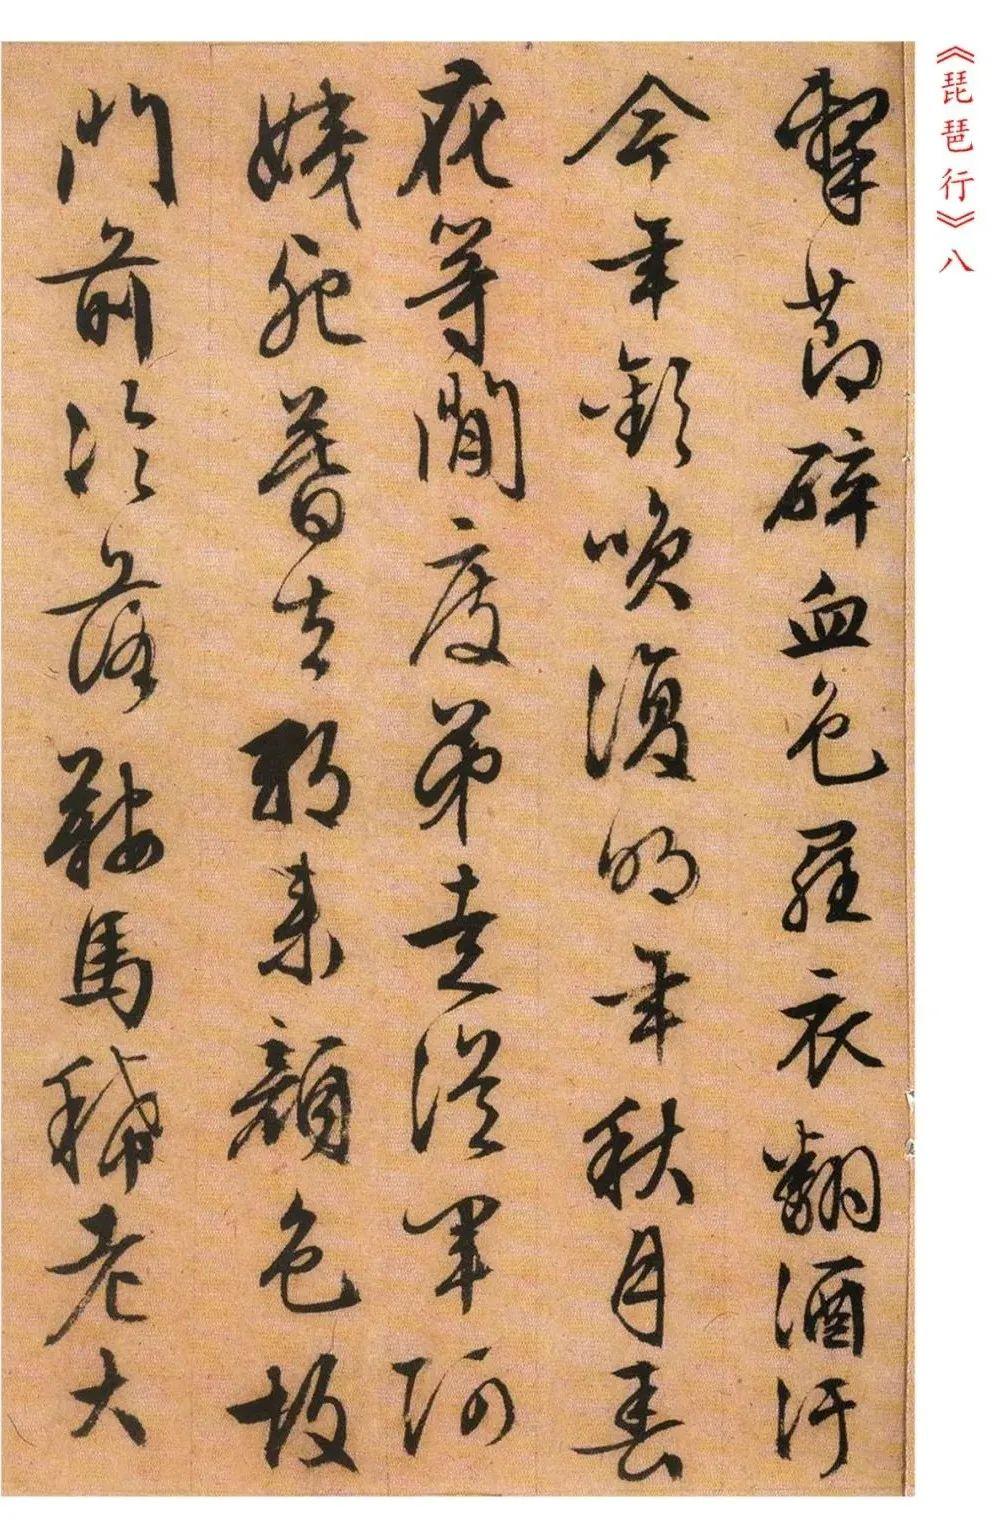 《琵琶行》八
擊節碎血色羅衣翻酒汙
今年歡咲復明年秋月春
花等閒度弟走從軍阿
姨死暮去朝來顏色故
門前冷落鞍馬稀老大